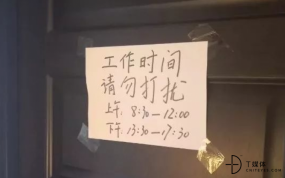 工作时间
请勿打扰
上午: 8:30—12:00
下午: 13:30—17:30
丁媒体